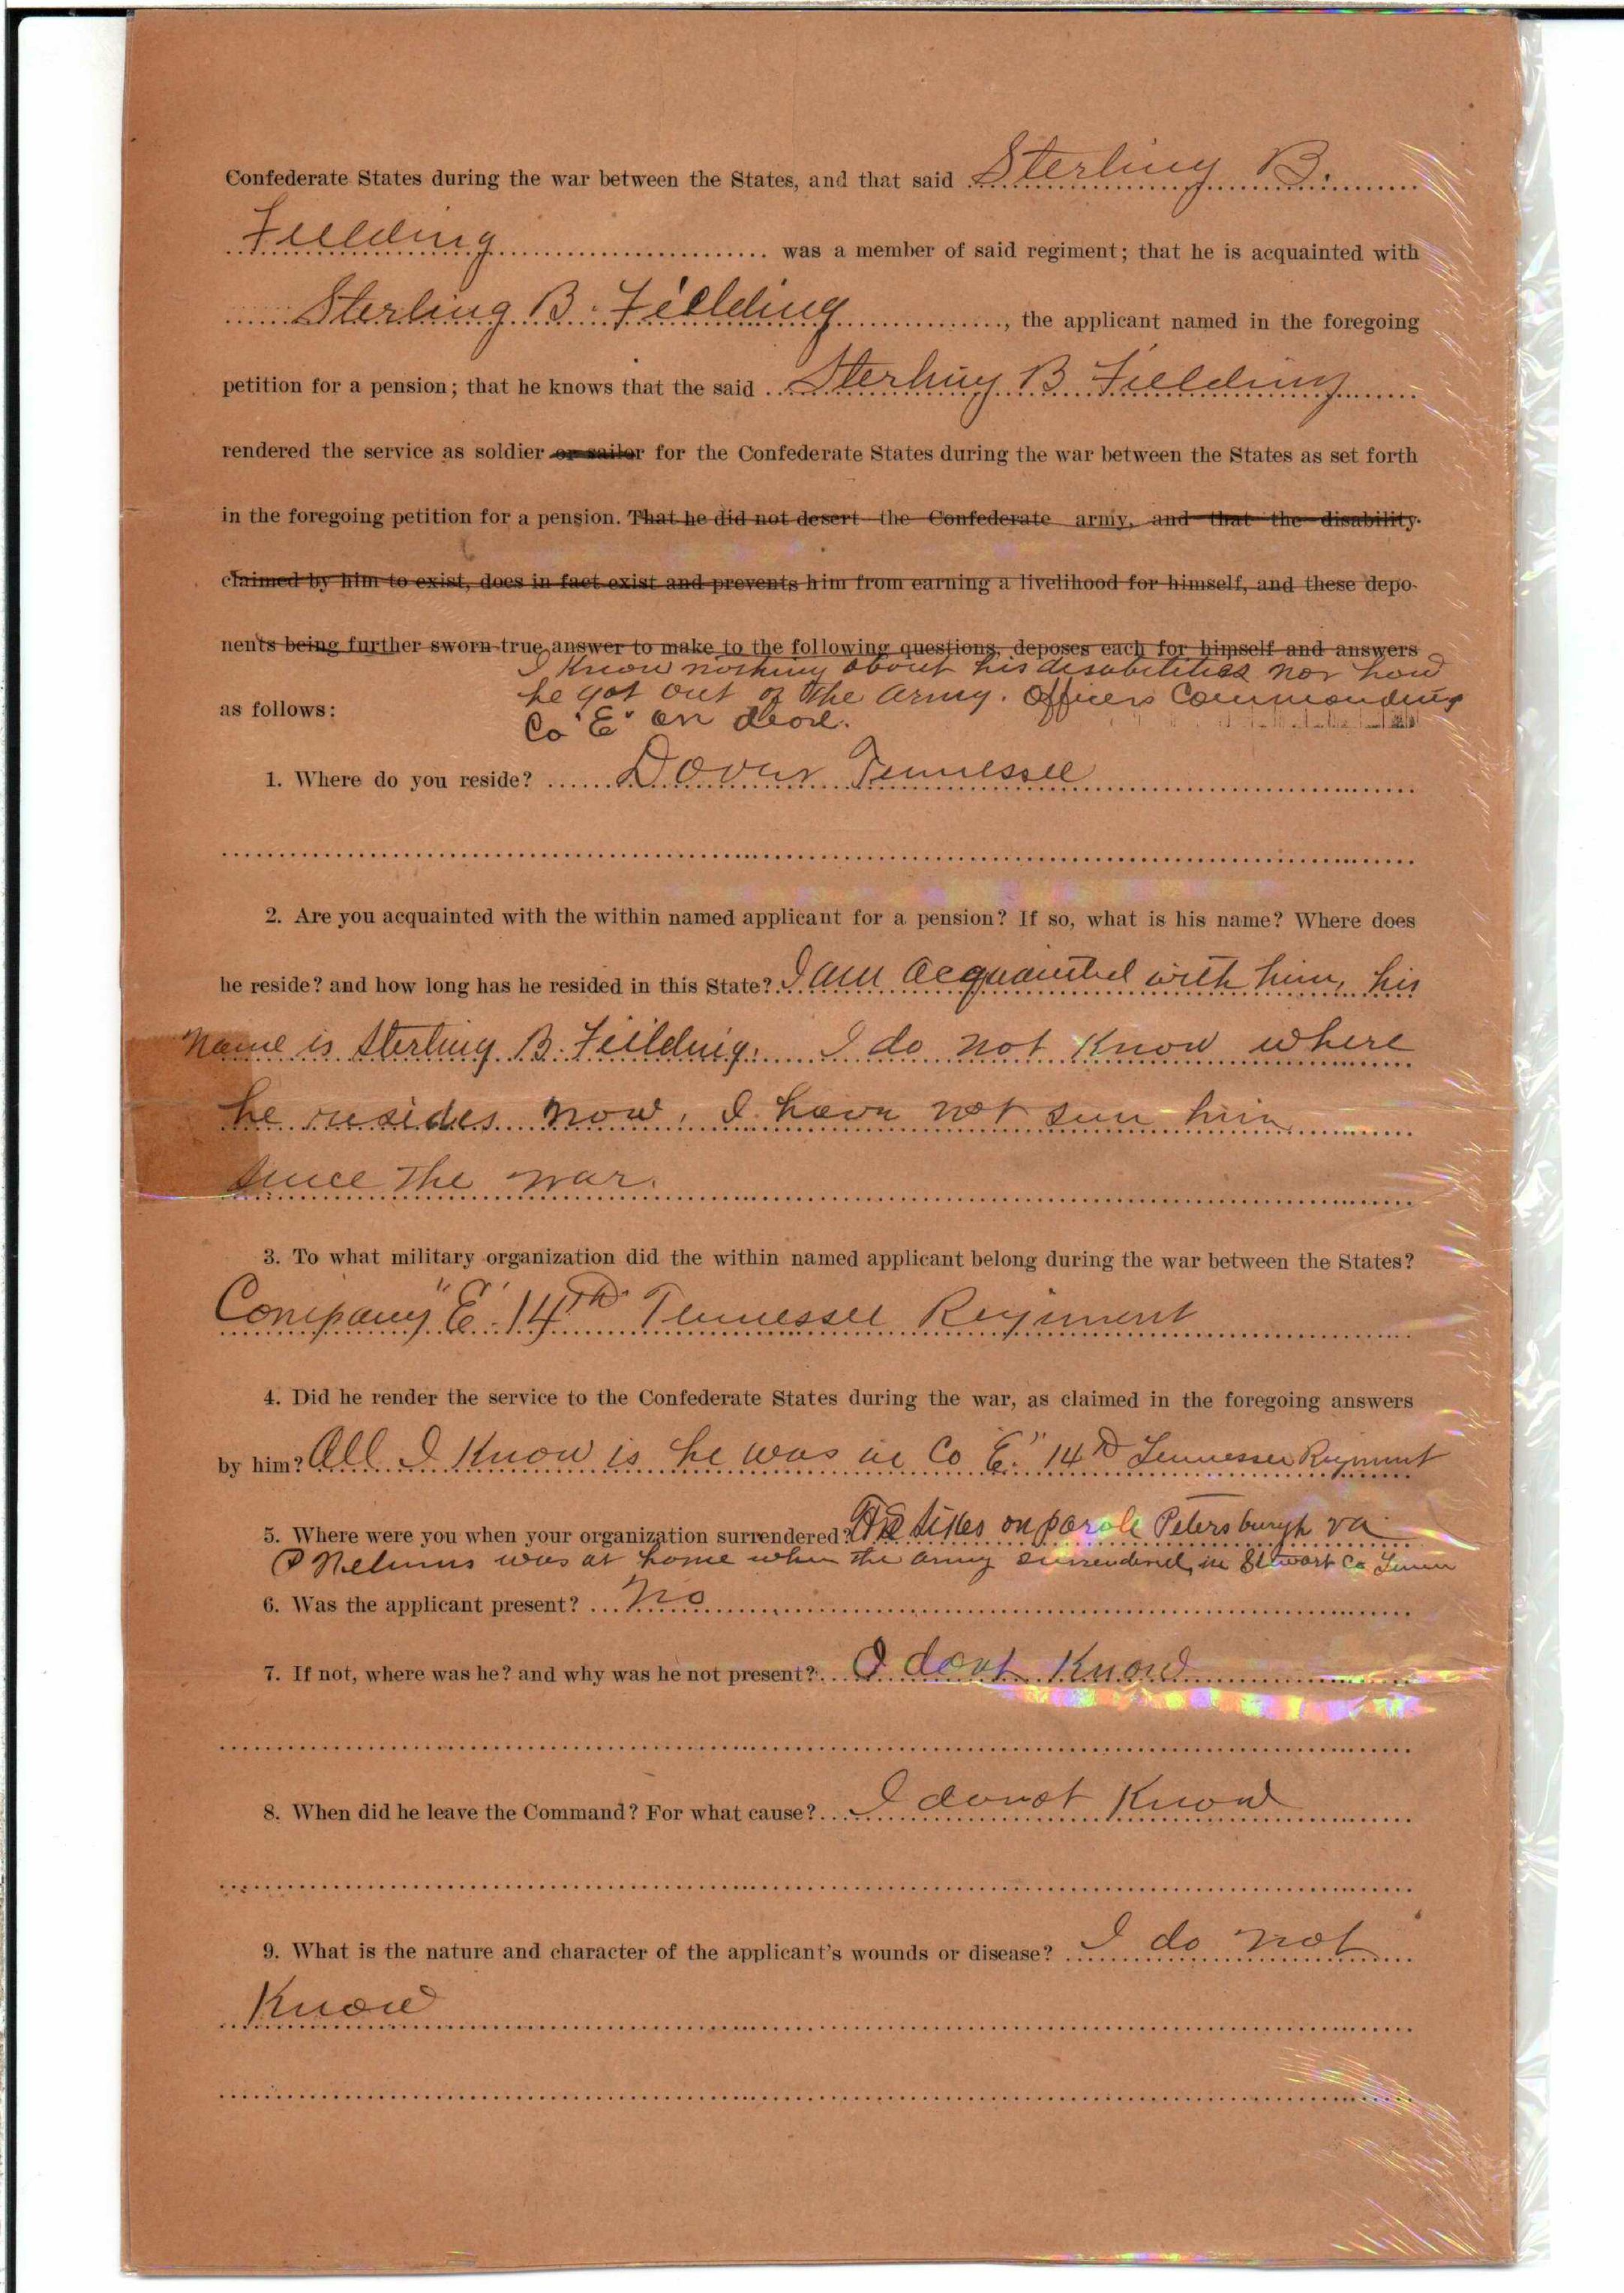 Confederate States during the war between the States, and that said Sterling B.
Fielding was a member of said regiment; that he is acquainted with
Sterling B. Fielding, the applicant named in the foregoing
petition for a pension; that he knows that the said Sterling B Fielding
rendered the service as soldier or sailor for the Confederate States during the war between the States as set forth
in the foregoing petition for a pension. That he did not desert the Confederate army, and that the disability
claimed by him to exist, does in fact exist and prevents him from earning a livelihood for himself, and these depo-
nents being further sworn true answer to make to the following questions, deposes each for himself and answers
I Know nothing about his disabilities nor how
he got out of the army. Officers Commanding
as follows:
Co "E" are dead.
1. Where do you reside? Dover Tennessee
2. Are you acquainted with the within named applicant for a pension? If so, what is his name? Where does
he reside? and how long has he resided in this State? I am acquainted with him, his
Name is Sterling B. Feilding. I do not Know where
he resides now. I have not seen him
since the war.
3. To what military organization did the within named applicant belong during the war between the States?
Company "E" 14th Tennessee Regiment
4. Did he render the service to the Confederate States during the war, as claimed in the foregoing answers
by him? All I Know is he was in Co E" 14th Tennessee Regiment
5. Where were you when your organization surrendered? on parole Petersburgh va
was at home when the army surrendered, in Stewart Co Tenn
6. Was the applicant present? No
7. If not, where was he? and why was he not present? I dont Know
8. When did he leave the Command? For what cause? I donot Know
9. What is the nature and character of the applicant's wounds or disease? I do not
Know